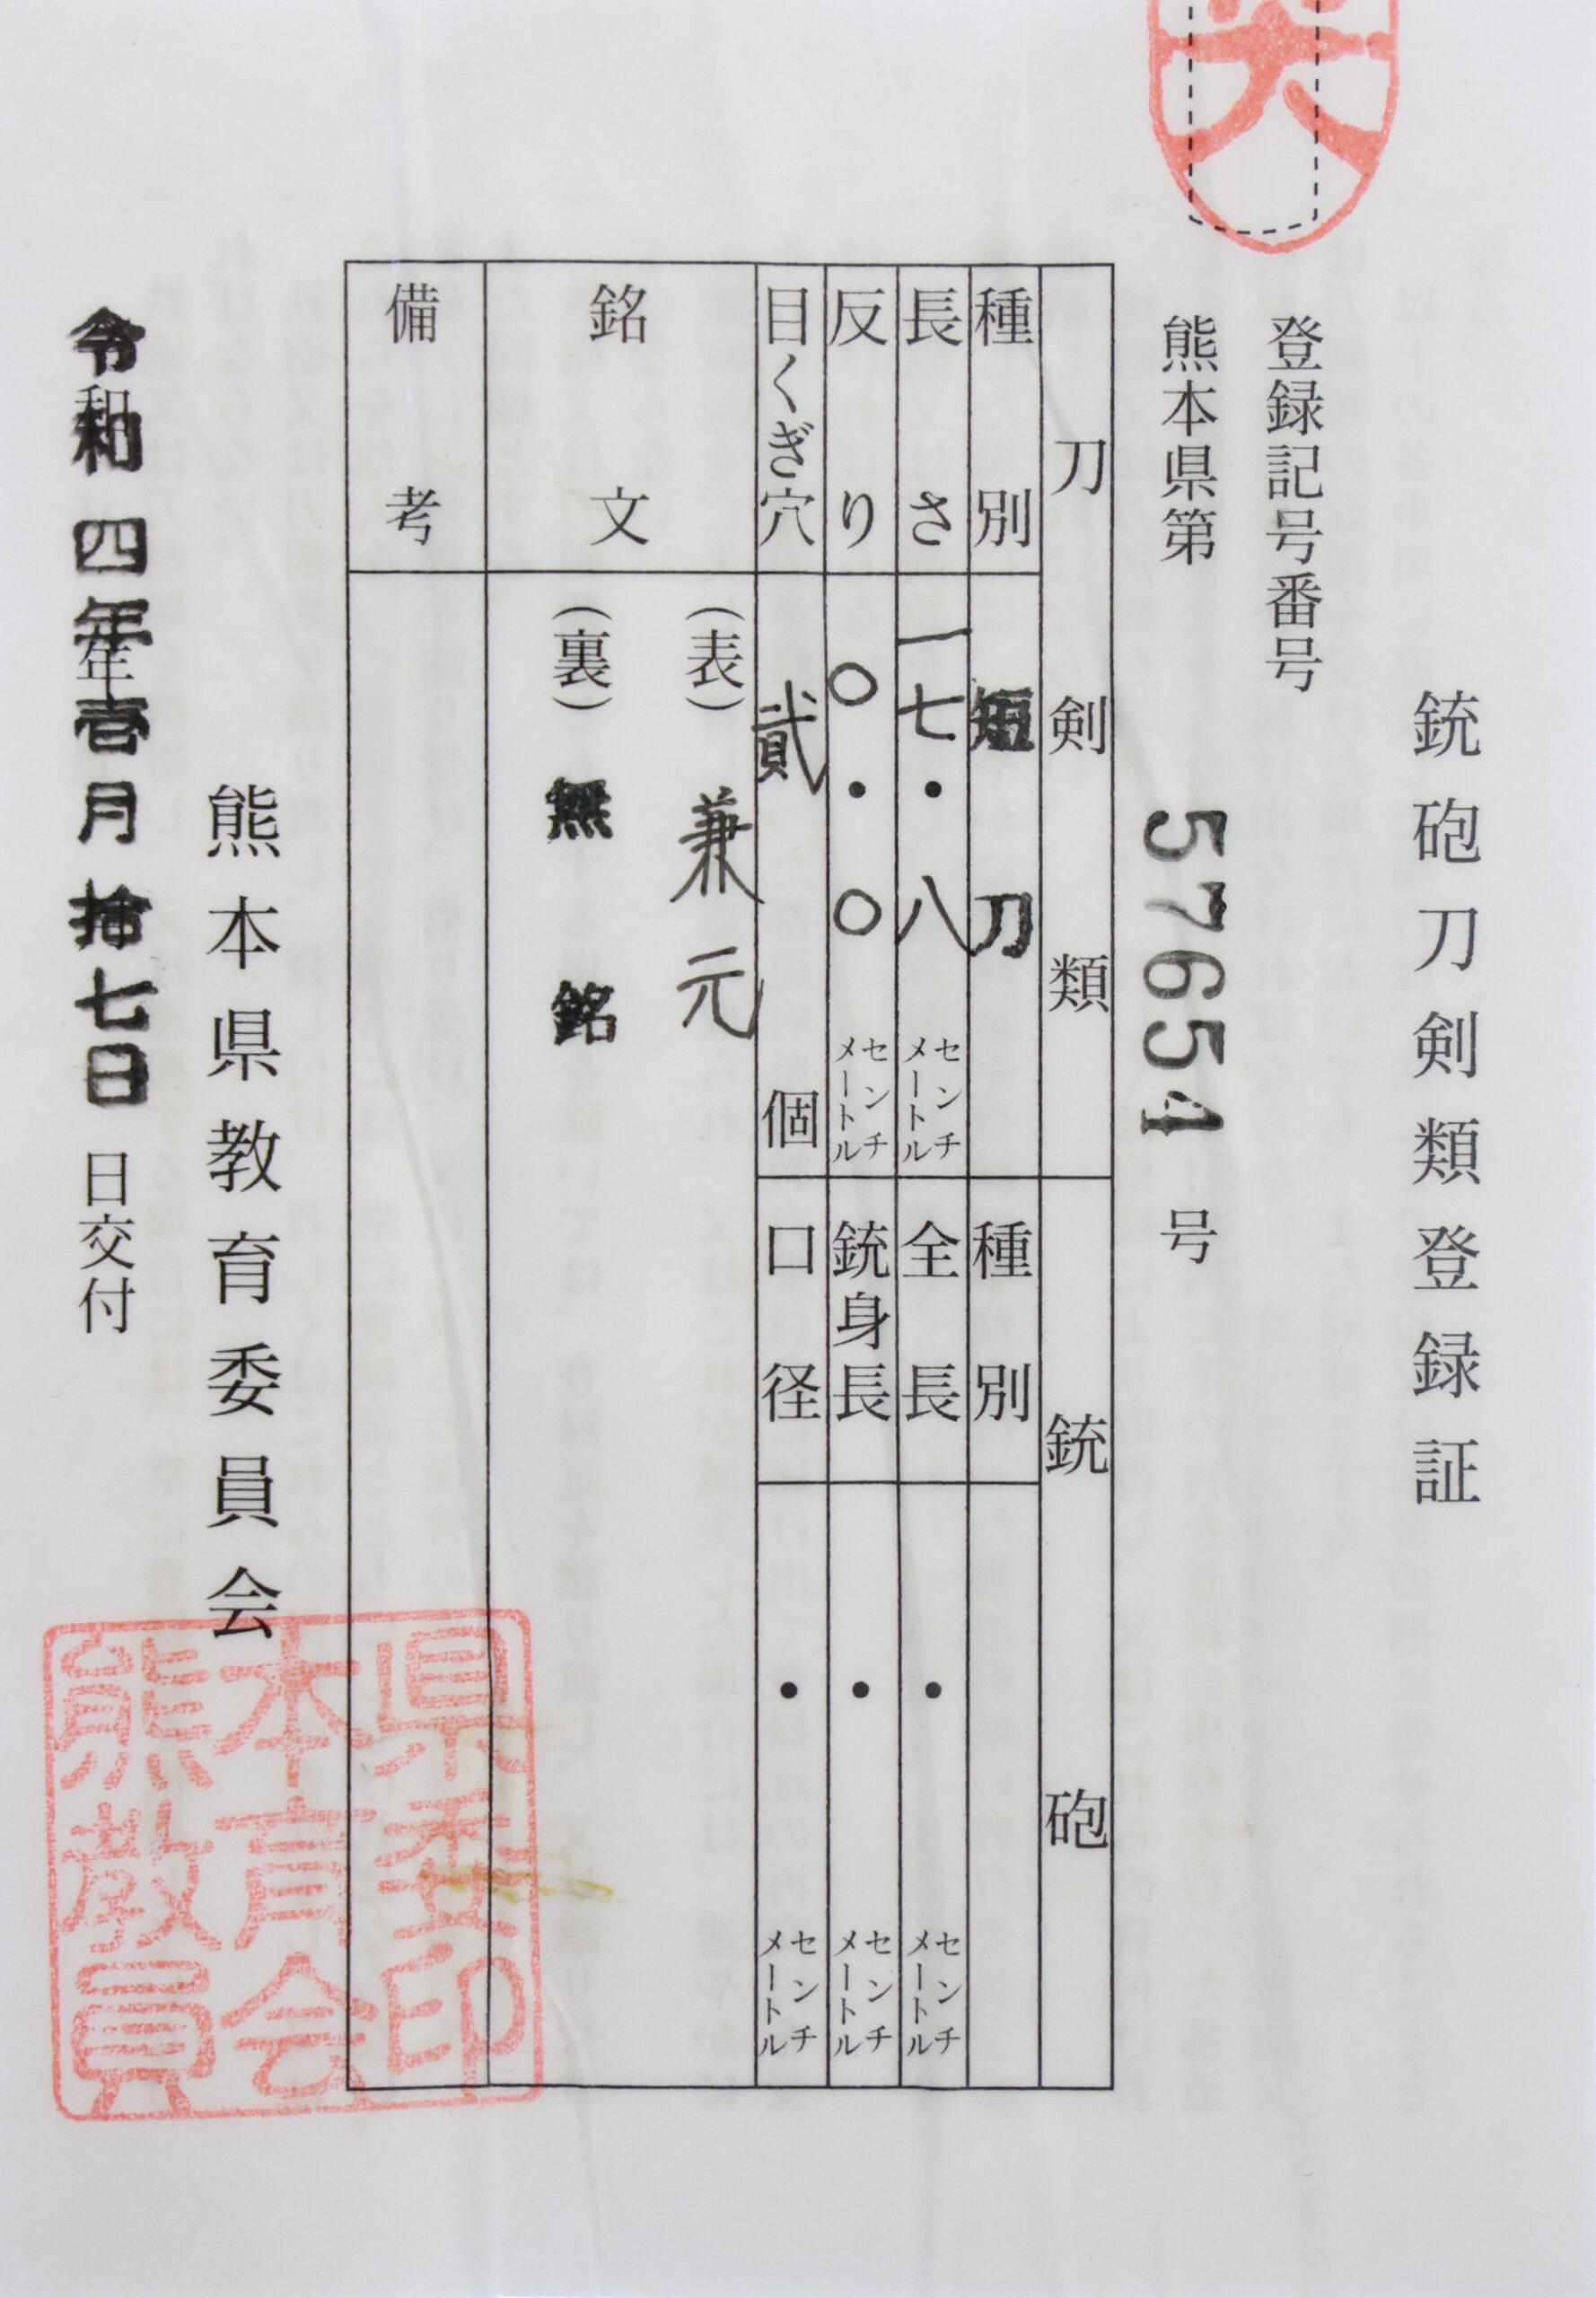 銃砲刀剣類登録証
登録記号番号
熊本県第 57654 号
刀剣類 銃砲
種別 短刀 種別
長さ 一七・八 センチメートル 全長 ・ センチメートル
反り 〇・〇 センチメートル 銃身長 ・ センチメートル
目くぎ穴 貳 個 口径 ・ センチメートル
銘文 (表) 兼元
(裏) 無銘
備考
熊本県教育委員会
令和四年壱月拾七日 日交付
県委印
本育会
熊教員